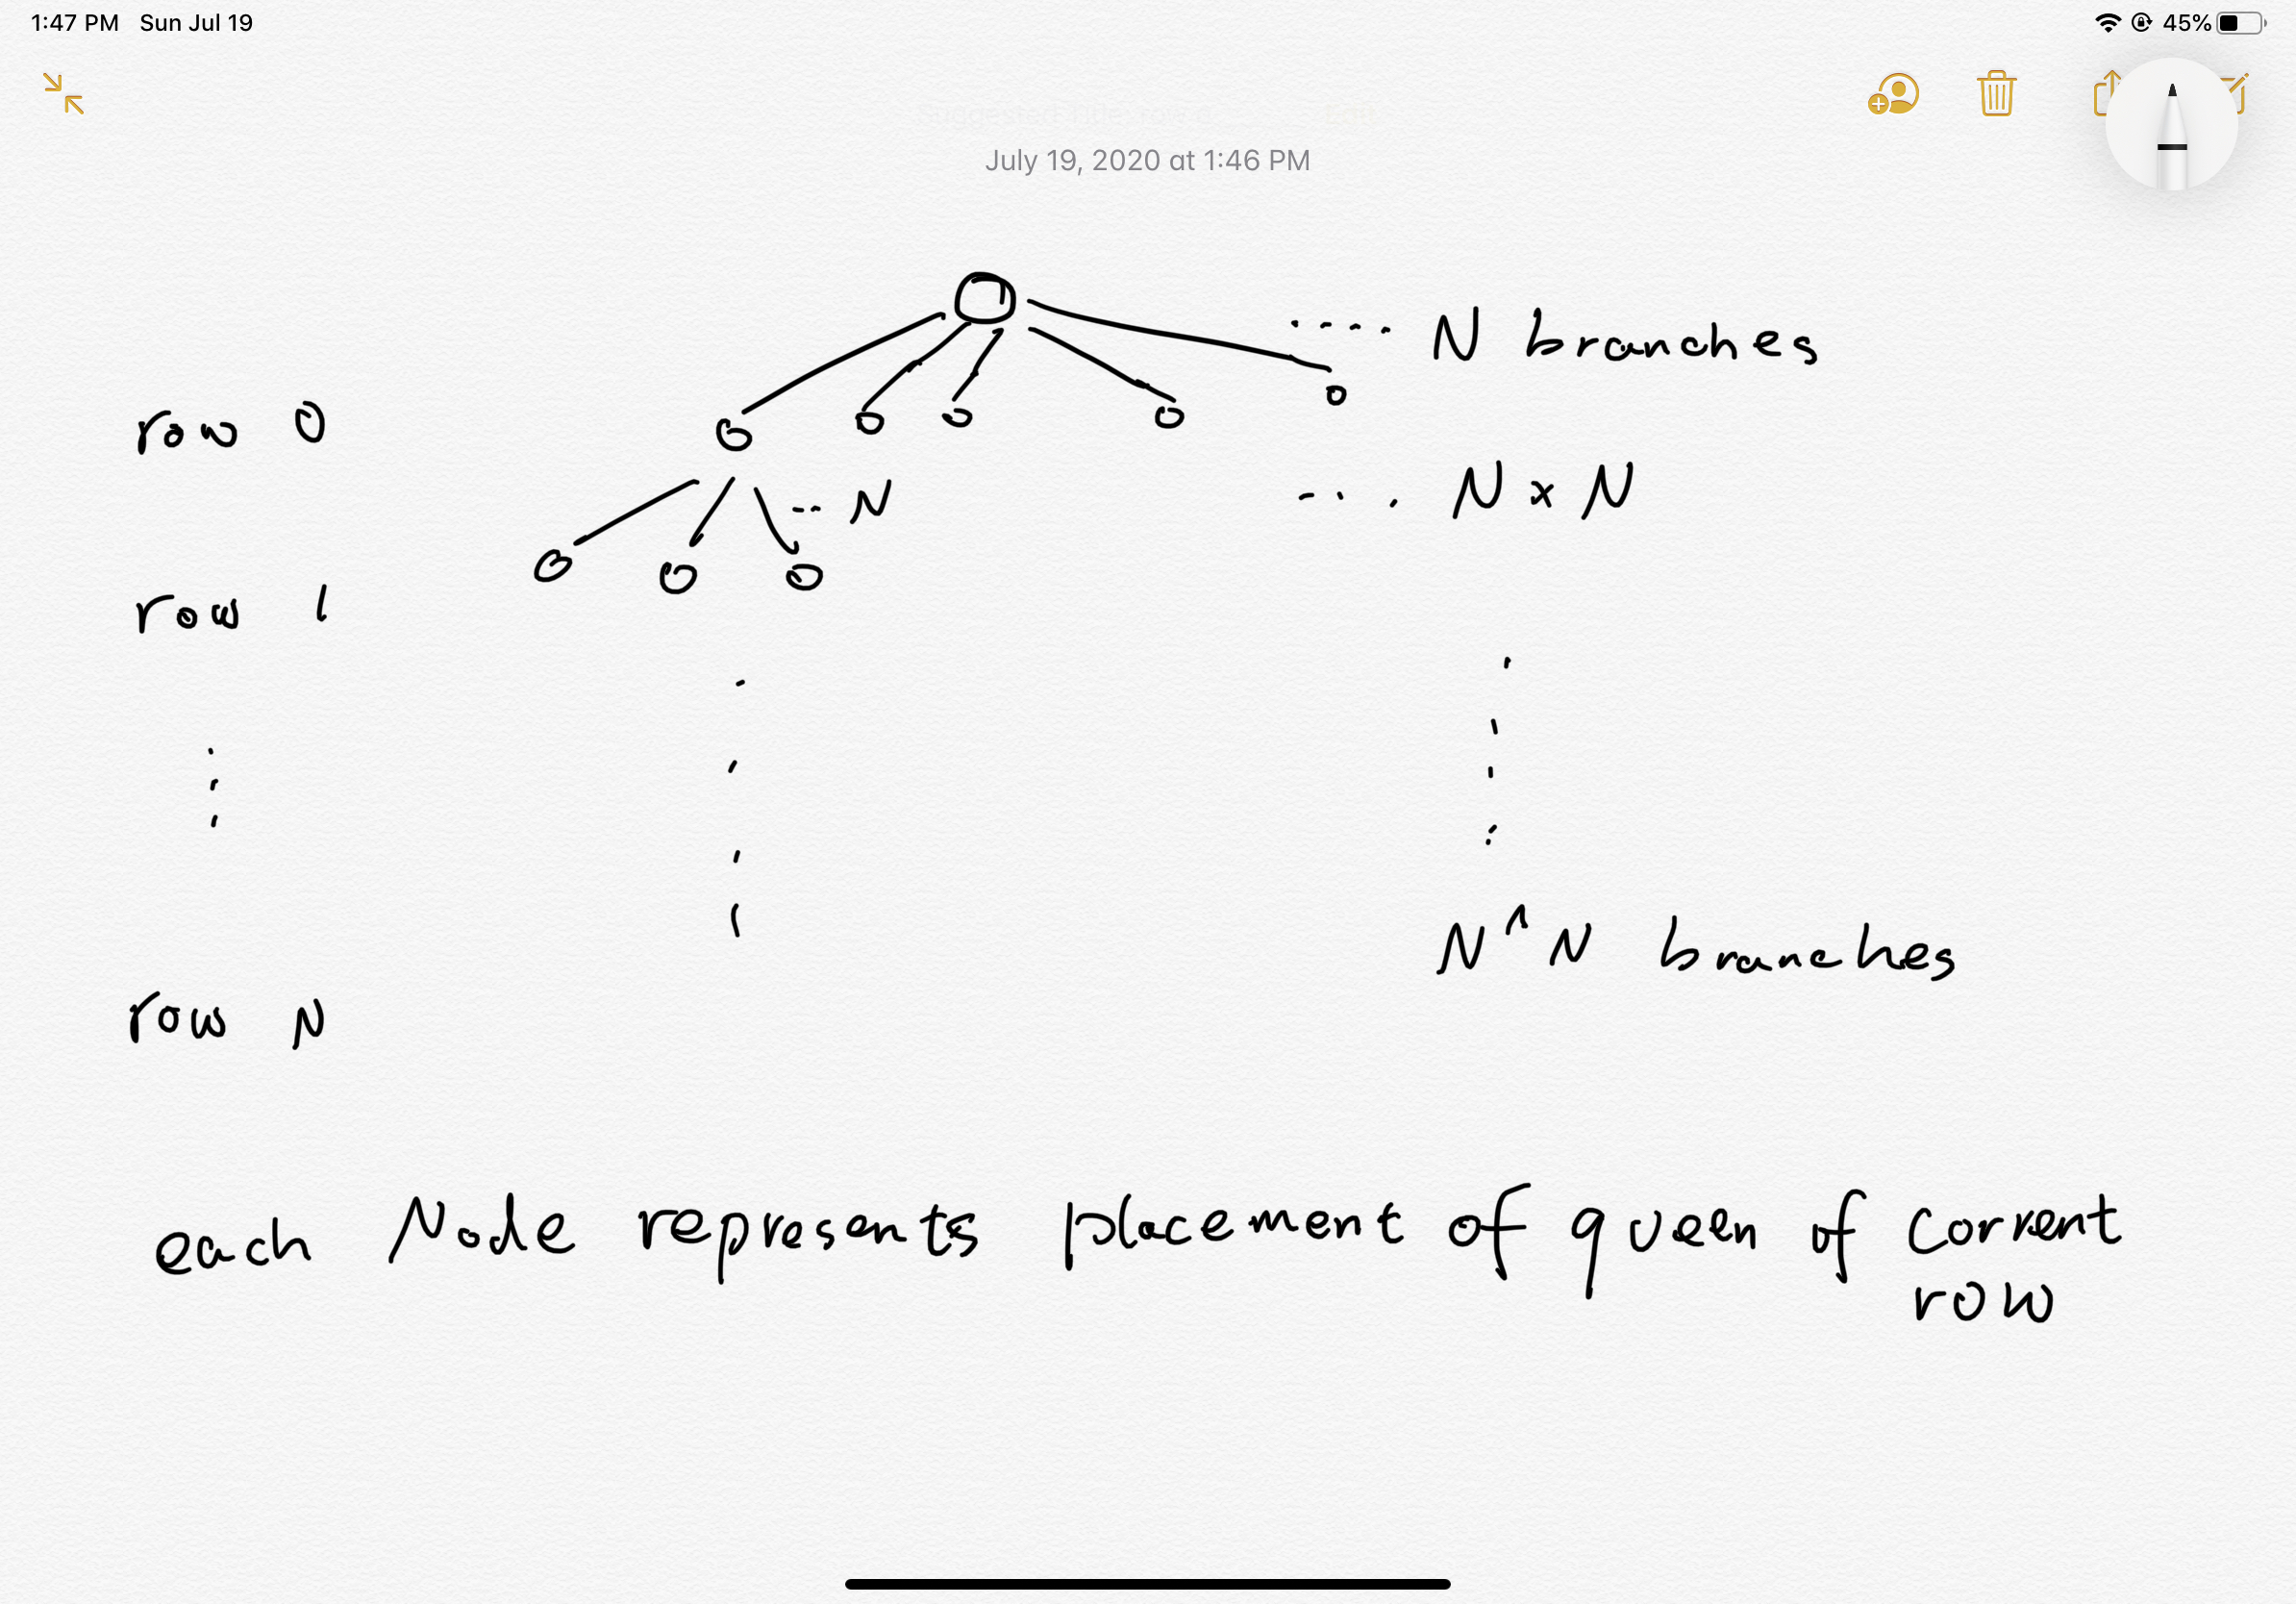 1:47 PM Sun Jul 19 45%
July 19, 2020 at 1:46 PM
.... N branches
row 0
.. N ... N x N
row 1
N ^ N branches
row N
each Node represents placement of queen of corrent
row